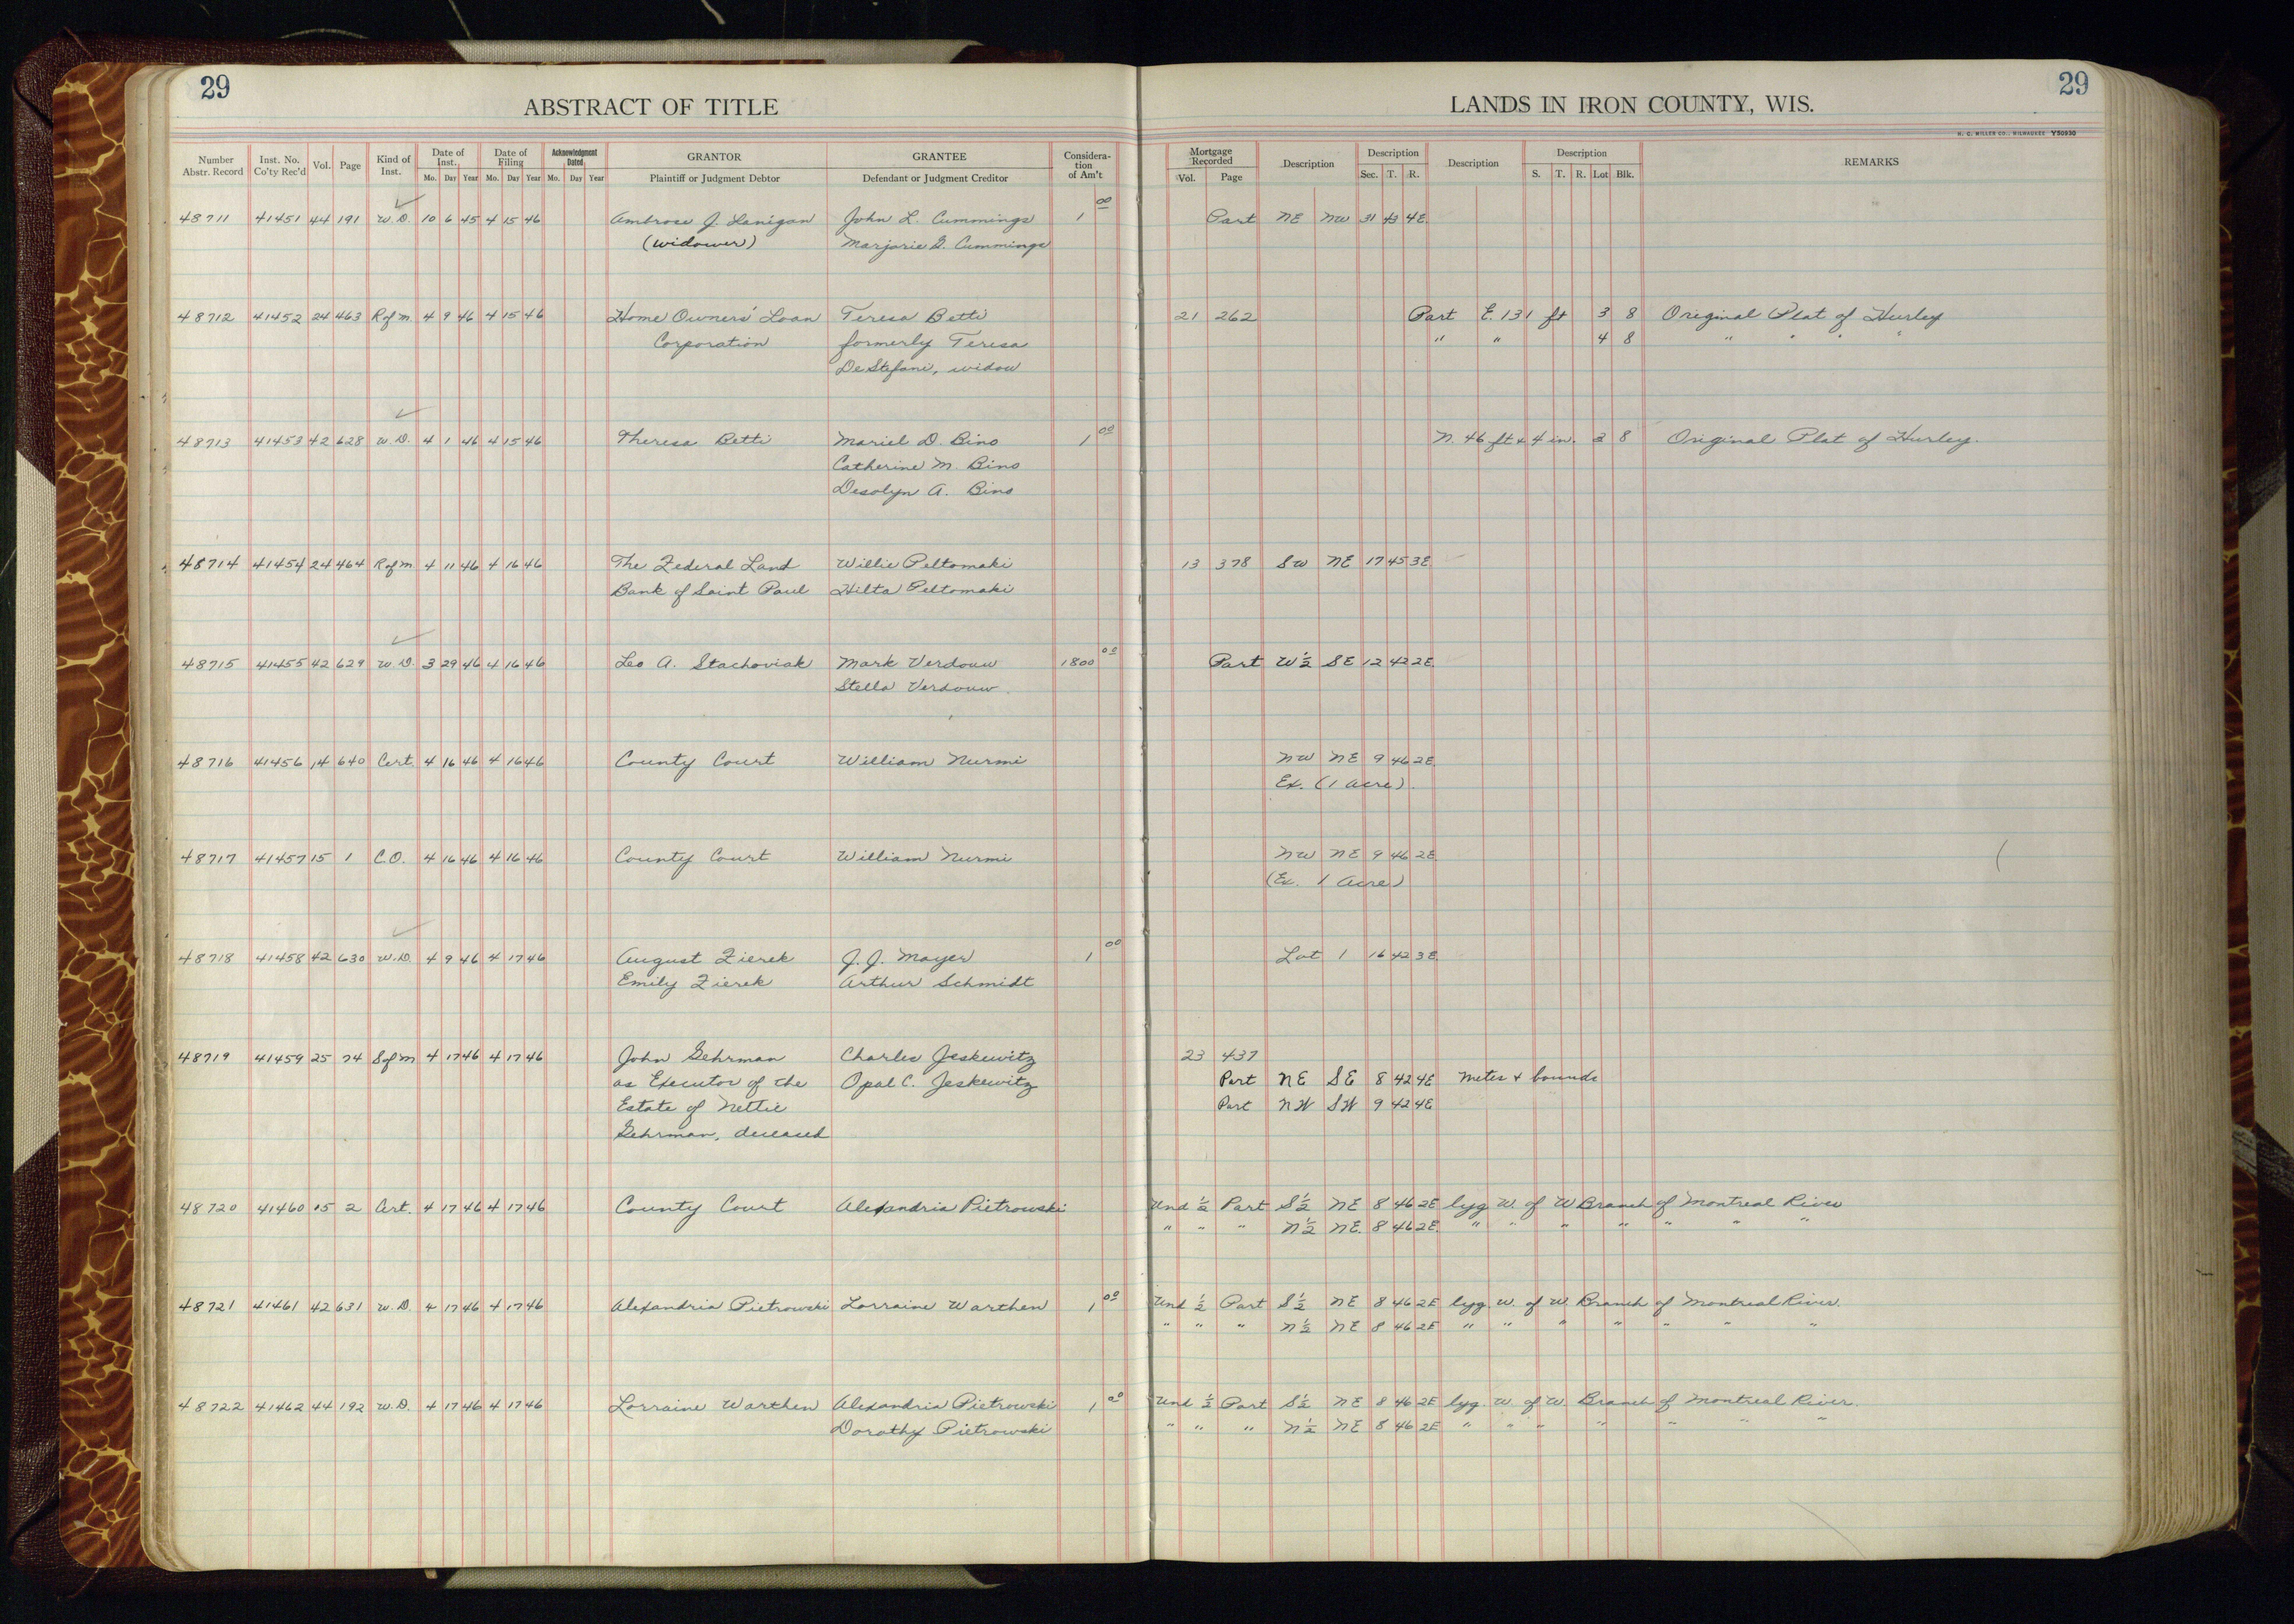 29
29
ABSTRACT OF TITLE
LANDS IN IRON COUNTY, WIS.
H. C. MILLER CO., MILWAUKEE Y50930
Number Abstr. Record Inst. No. Co'ty Rec'd Vol. Page Kind of Inst. Date of Inst. Date of Filing Acknowledgment Dated GRANTOR GRANTEE Consideration of Am't Mortgage Recorded Description Description Description Description REMARKS
Mo. Day Year Mo. Day Year Mo. Day Year Plaintiff or Judgment Debtor Defendant or Judgment Creditor Vol. Page Sec. T. R. S. T. R. Lot Blk.
48711 41451 44 191 W.D. 10 6 45 4 15 46 Ambrose J. Lanigan John L. Cummings 1 00 Part NE NW 31 43 4E
(widower) Marjorie G. Cummings
48712 41452 24 463 R of M 4 9 46 4 15 46 Home Owners' Loan Teresa Betti 21 262 Part E. 131 ft 3 8 Original Plat of Hurley
Corporation formerly Teresa " " 4 8 " " " "
De Stefani, widow
48713 41453 42 628 W.D. 4 1 46 4 15 46 Theresa Betti Mariel D. Bino 1 00 N. 46 ft & 4 in. 3 8 Original Plat of Hurley.
Catherine M. Bino
Desolyn A. Bino
48714 41454 24 464 R of M 4 11 46 4 16 46 The Federal Land Willie Peltomaki 13 378 SW NE 17 45 3E
Bank of Saint Paul Hilta Peltomaki
48715 41455 42 629 W.D. 3 29 46 4 16 46 Leo A. Stachoviak Mark Verdouw 1800 00 Part W½ SE 12 42 2E
Stella Verdouw.
48716 41456 14 640 Cert. 4 16 46 4 16 46 County Court William Nurmi NW NE 9 46 2E
Ex. (1 acre)
48717 41457 15 1 C.O. 4 16 46 4 16 46 County Court William Nurmi NW NE 9 46 2E
(Ex. 1 Acre)
48718 41458 42 630 W.D. 4 9 46 4 17 46 August Zierek J. J. Mayer 1 00 Lot 1 16 42 3E
Emily Zierek Arthur Schmidt
48719 41459 25 74 S of M 4 17 46 4 17 46 John Gehrman Charles Jeskewitz 23 437
as Executor of the Opal C. Jeskewitz Part NE SE 8 42 4E metes & bounds
Estate of Nettie Part NW SW 9 42 4E
Gehrman, deceased
48720 41460 15 2 Cert. 4 17 46 4 17 46 County Court Alexandria Pietrowski Und ½ Part S½ NE 8 46 2E lyg W. of W Branch of Montreal River
" " " N½ NE 8 46 2E " " " " " " "
48721 41461 42 631 W.D. 4 17 46 4 17 46 Alexandria Pietrowski Lorraine Warthen 1 00 Und ½ Part S½ NE 8 46 2E lyg. W. of W. Branch of Montreal River.
" " " N½ NE 8 46 2E " " " " " " "
48722 41462 44 192 W.D. 4 17 46 4 17 46 Lorraine Warthen Alexandria Pietrowski 1 00 Und ½ Part S½ NE 8 46 2E lyg. W. of W. Branch of Montreal River.
Dorothy Pietrowski " " " N½ NE 8 46 2E " " " " " " "